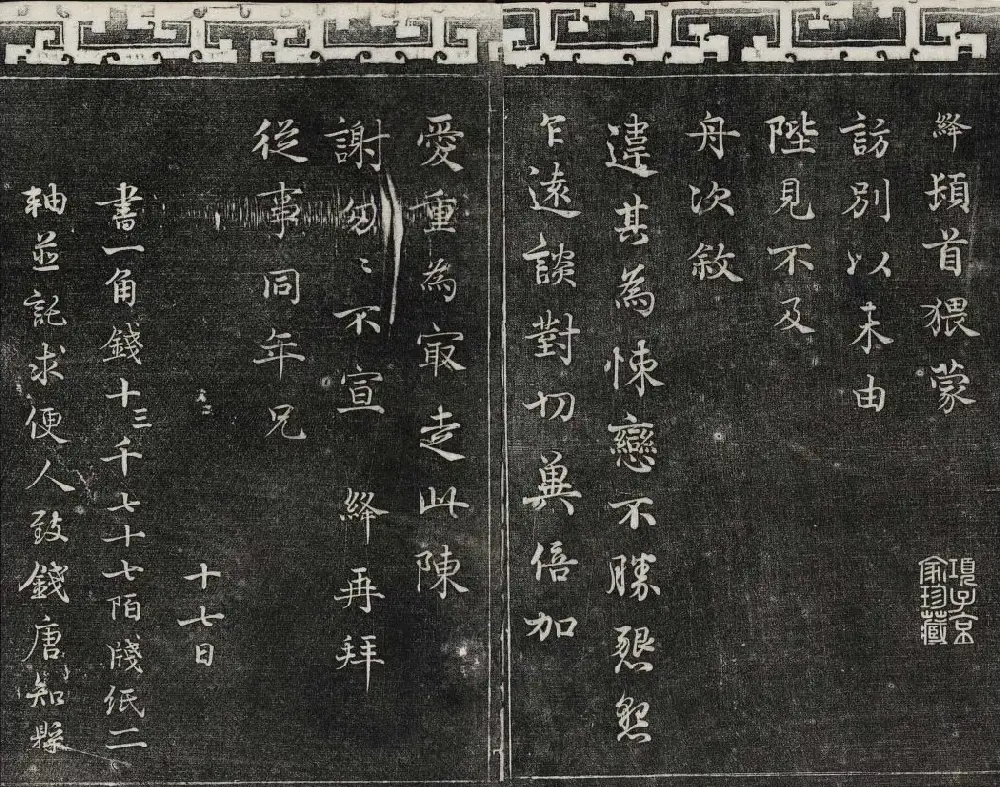 絳頓首猥蒙
訪別以未由
陛見不及
舟次敘
違甚為悚戀不勝懇懇
乍遠談對切冀倍加
愛重為㝡走此陳
謝匆匆不宣 絳再拜
從事同年兄
十七日
書一角錢十三千七十七陌牋紙二
軸並託求便人致錢唐知縣
項子京
家珍藏